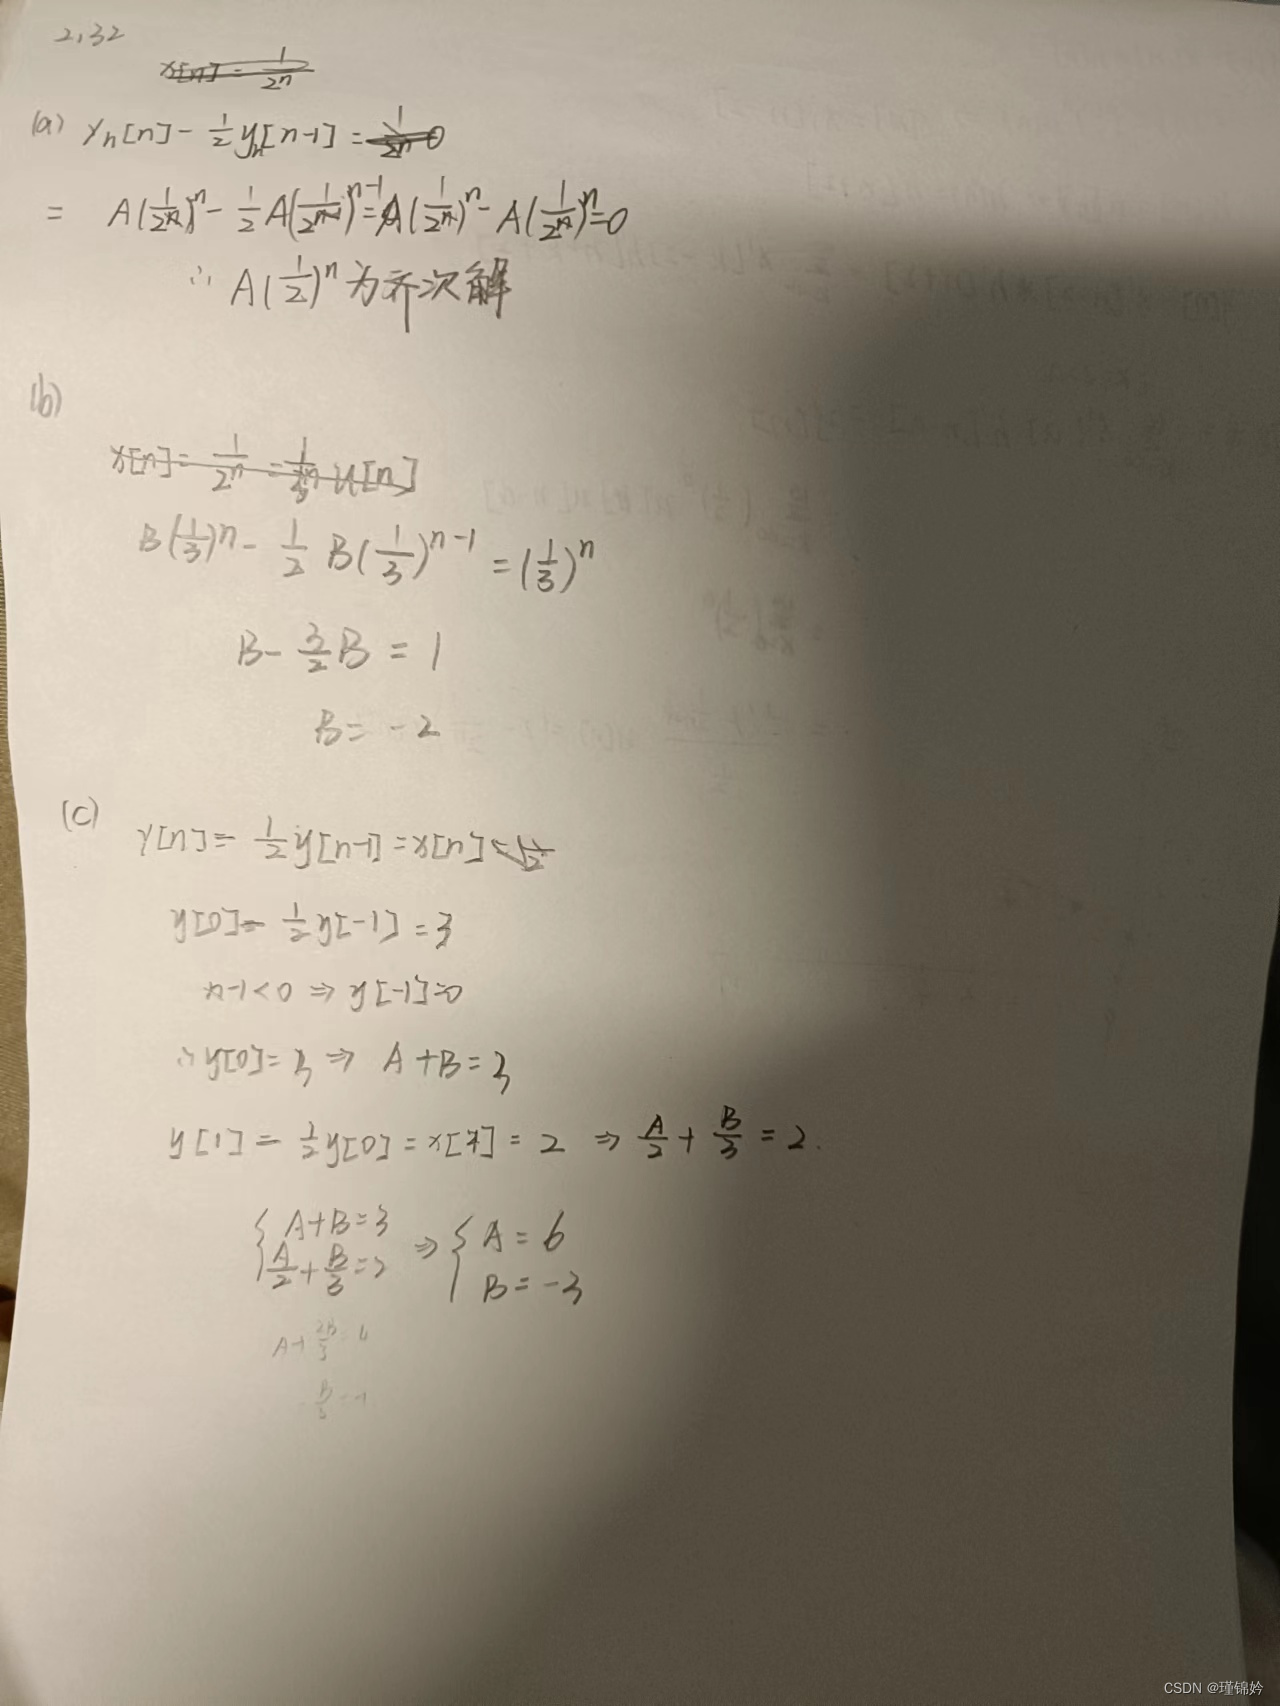 2.32
x[n] = 1/2^n
(a) y_h[n] - 1/2 y_h[n-1] = 0
= A(1/2)^n - 1/2 A(1/2)^{n-1} = A(1/2)^n - A(1/2)^n = 0
∴ A(1/2)^n 为齐次解
(b)
x[n] = 1/2^n = 1/3^n u[n]
B(1/3)^n - 1/2 B(1/3)^{n-1} = (1/3)^n
B - 3/2 B = 1
B = -2
(c)
y[n] = 1/2 y[n-1] = x[n]
y[0] - 1/2 y[-1] = 3
n-1<0 ⇒ y[-1]=0
∴ y[0] = 3 ⇒ A+B=3
y[1] - 1/2 y[0] = x[1] = 2 ⇒ A/2 + B/3 = 2.
{ A+B=3
A/2 + B/3 = 2 ⇒ { A = 6
B = -3
A+ 2B/3 = 4
B/3 = -1
CSDN @瑾锦妗